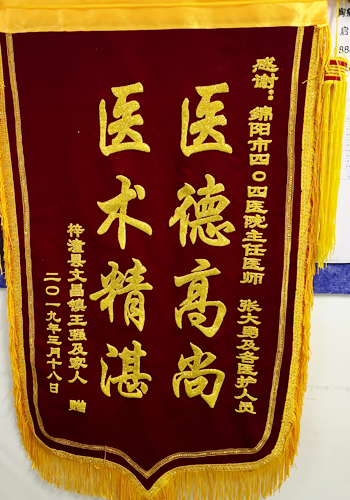 感谢：绵阳市四〇四医院主任医师 张大勇及各医护人员
医德高尚
医术精湛
梓潼县文昌镇王强及家人 赠
二〇一九年三月十八日